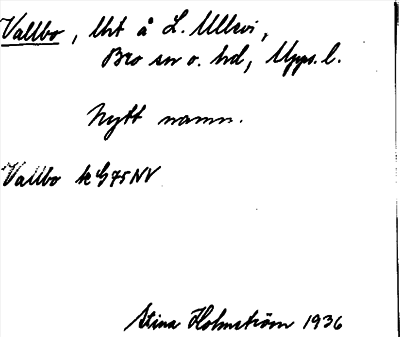 Vallbo, lht å L. Ullevi,
Bro sn o. hd, Upps. l.
Nytt namn.
Vallbo k G 75 NV
Stina Holmström 1936